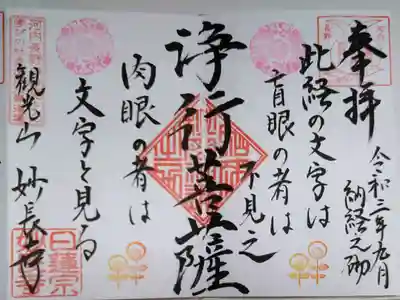 奉拝
令和三年九月
納経之砌
此経の文字は
盲眼の者は
不見之
浄行菩薩
肉眼の者は
文字と見る
観光山 妙長寺
日蓮宗